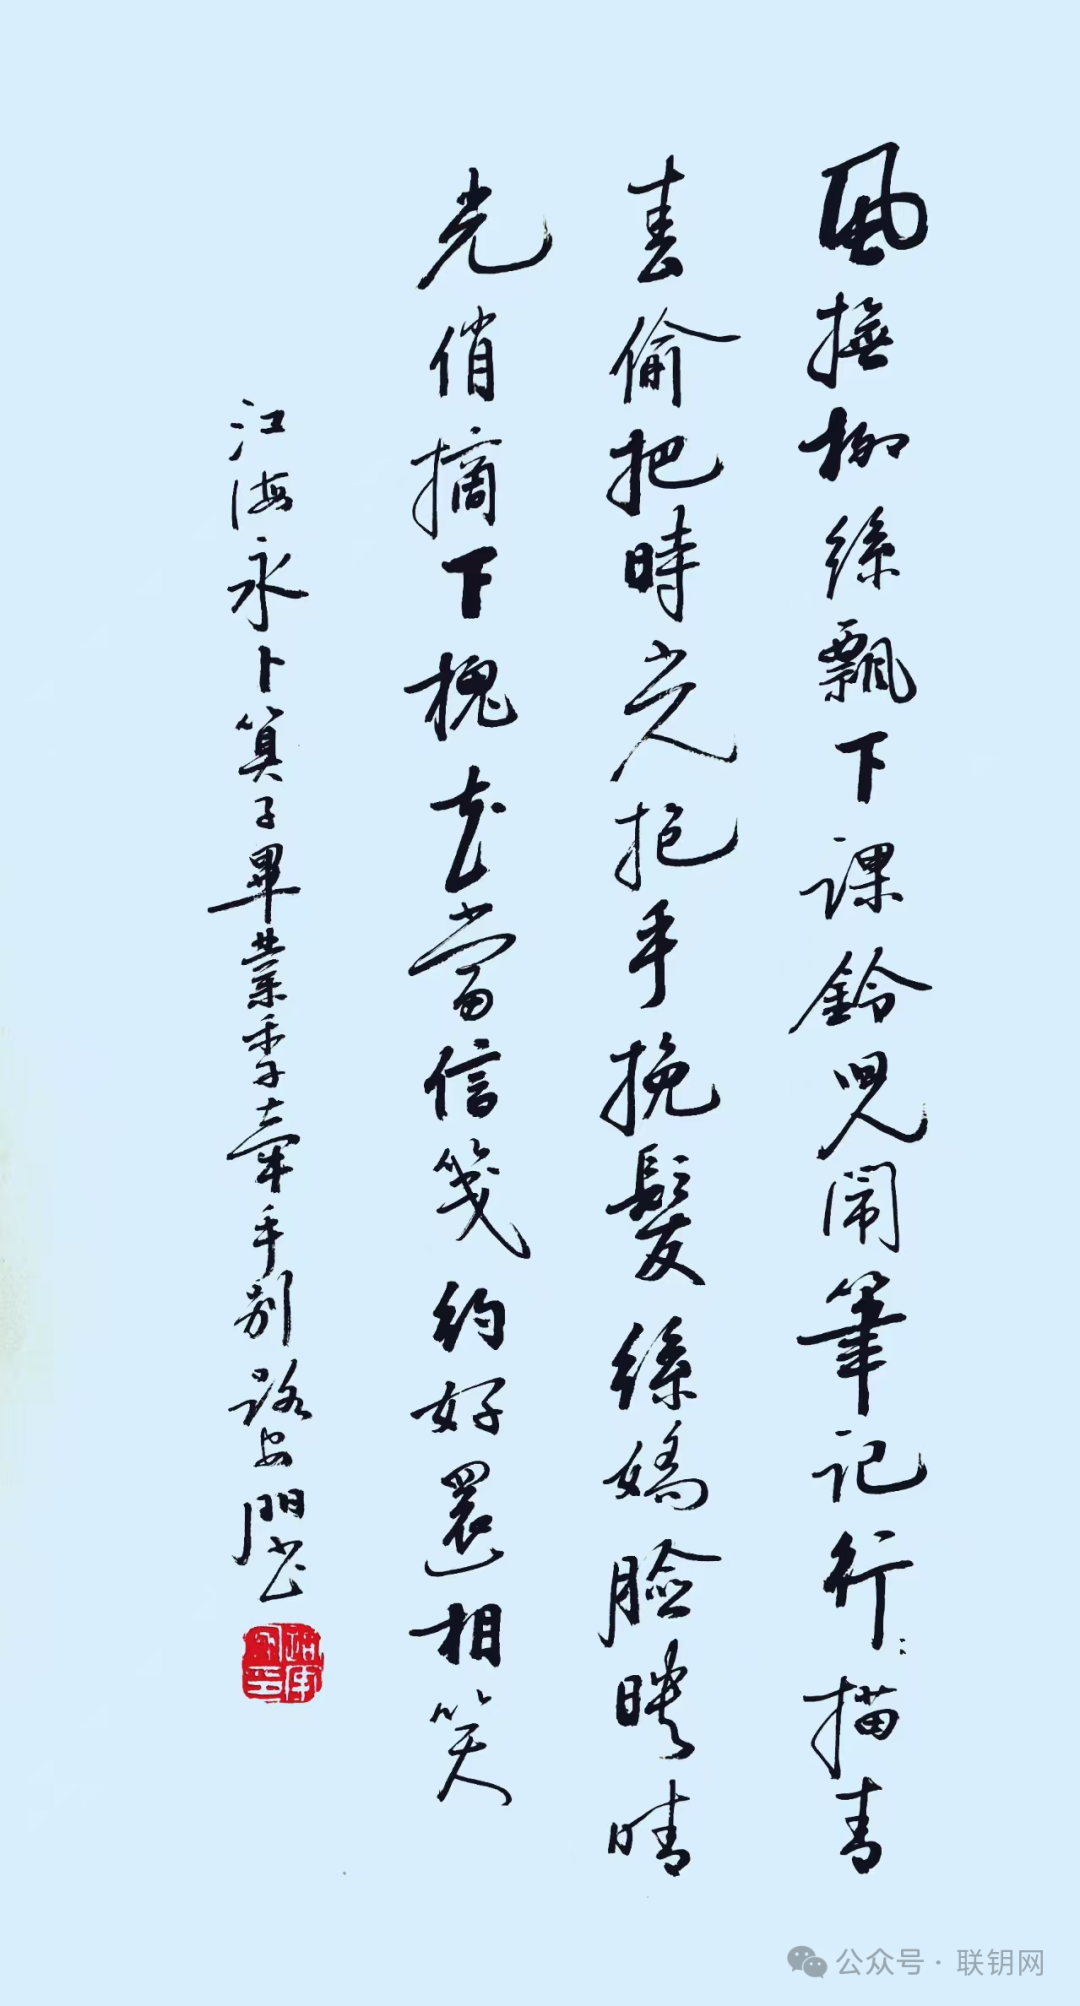 風撫柳絲飄下課鈴兒鬧筆記行:描青
春偷把時光抱手挽髮絲嬌臉映晴
光俏摘下槐花當信箋約好還相笑
江海永卜算子畢業季牽手別路安開書
公众号·联钥网